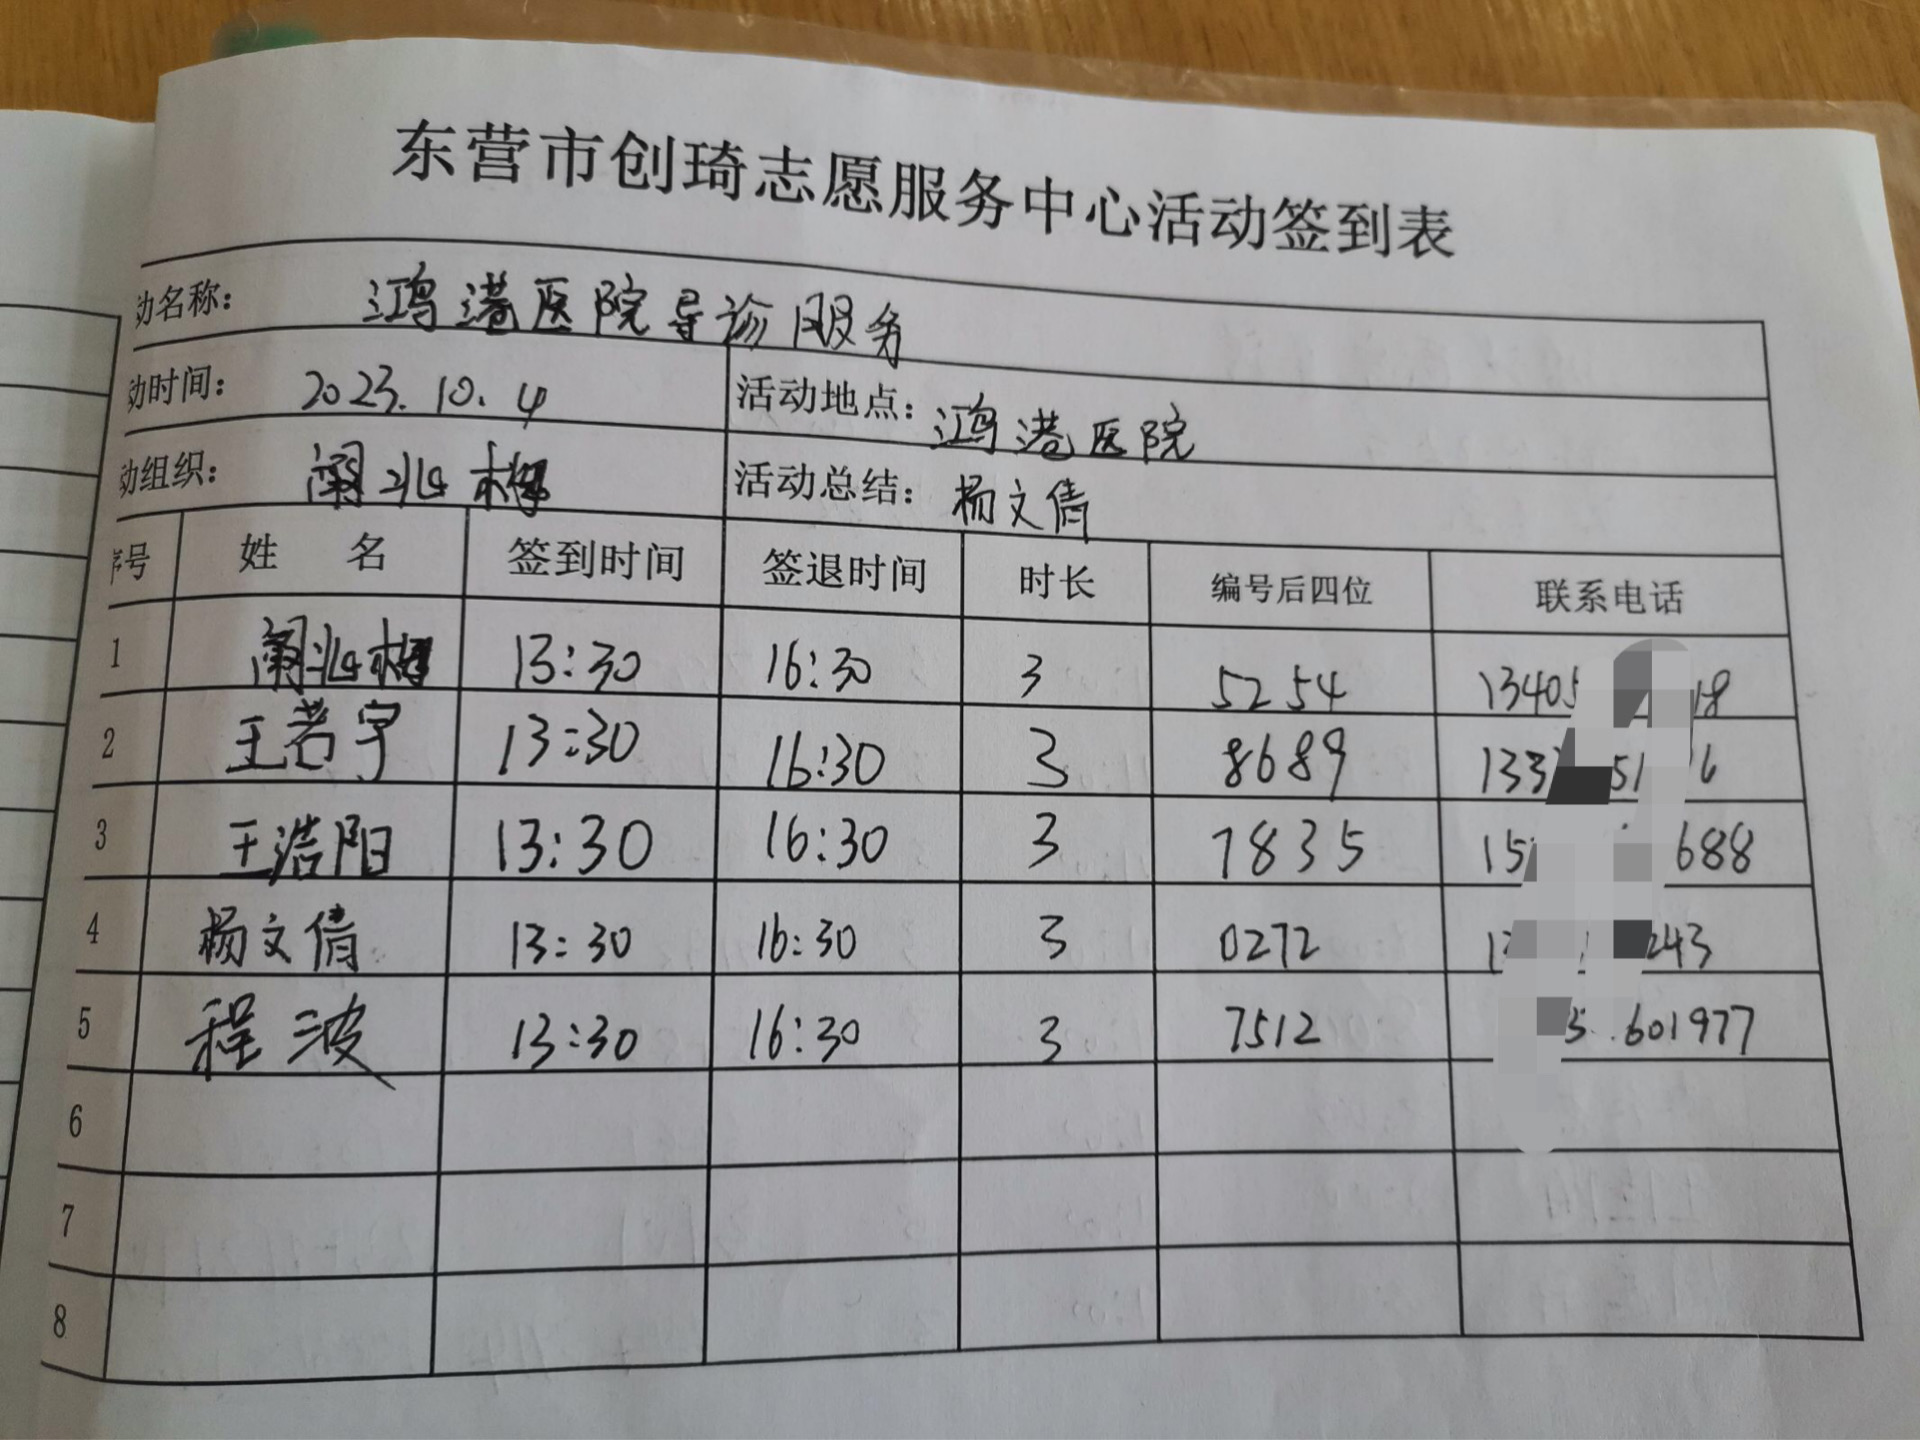 东营市创琦志愿服务中心活动签到表
动名称: 鸿港医院导诊服务
动时间: 2023.10.4 活动地点: 鸿港医院
动组织: 活动总结: 杨文倩
序号 姓 名 签到时间 签退时间 时长 编号后四位 联系电话
1 13:30 16:30 3 5254 13405 18
2 王若宇 13:30 16:30 3 8689 133 51 6
3 王浩阳 13:30 16:30 3 7835 15 688
4 杨文倩 13:30 16:30 3 0272 1 243
5 程波 13:30 16:30 3 7512 601977
6
7
8